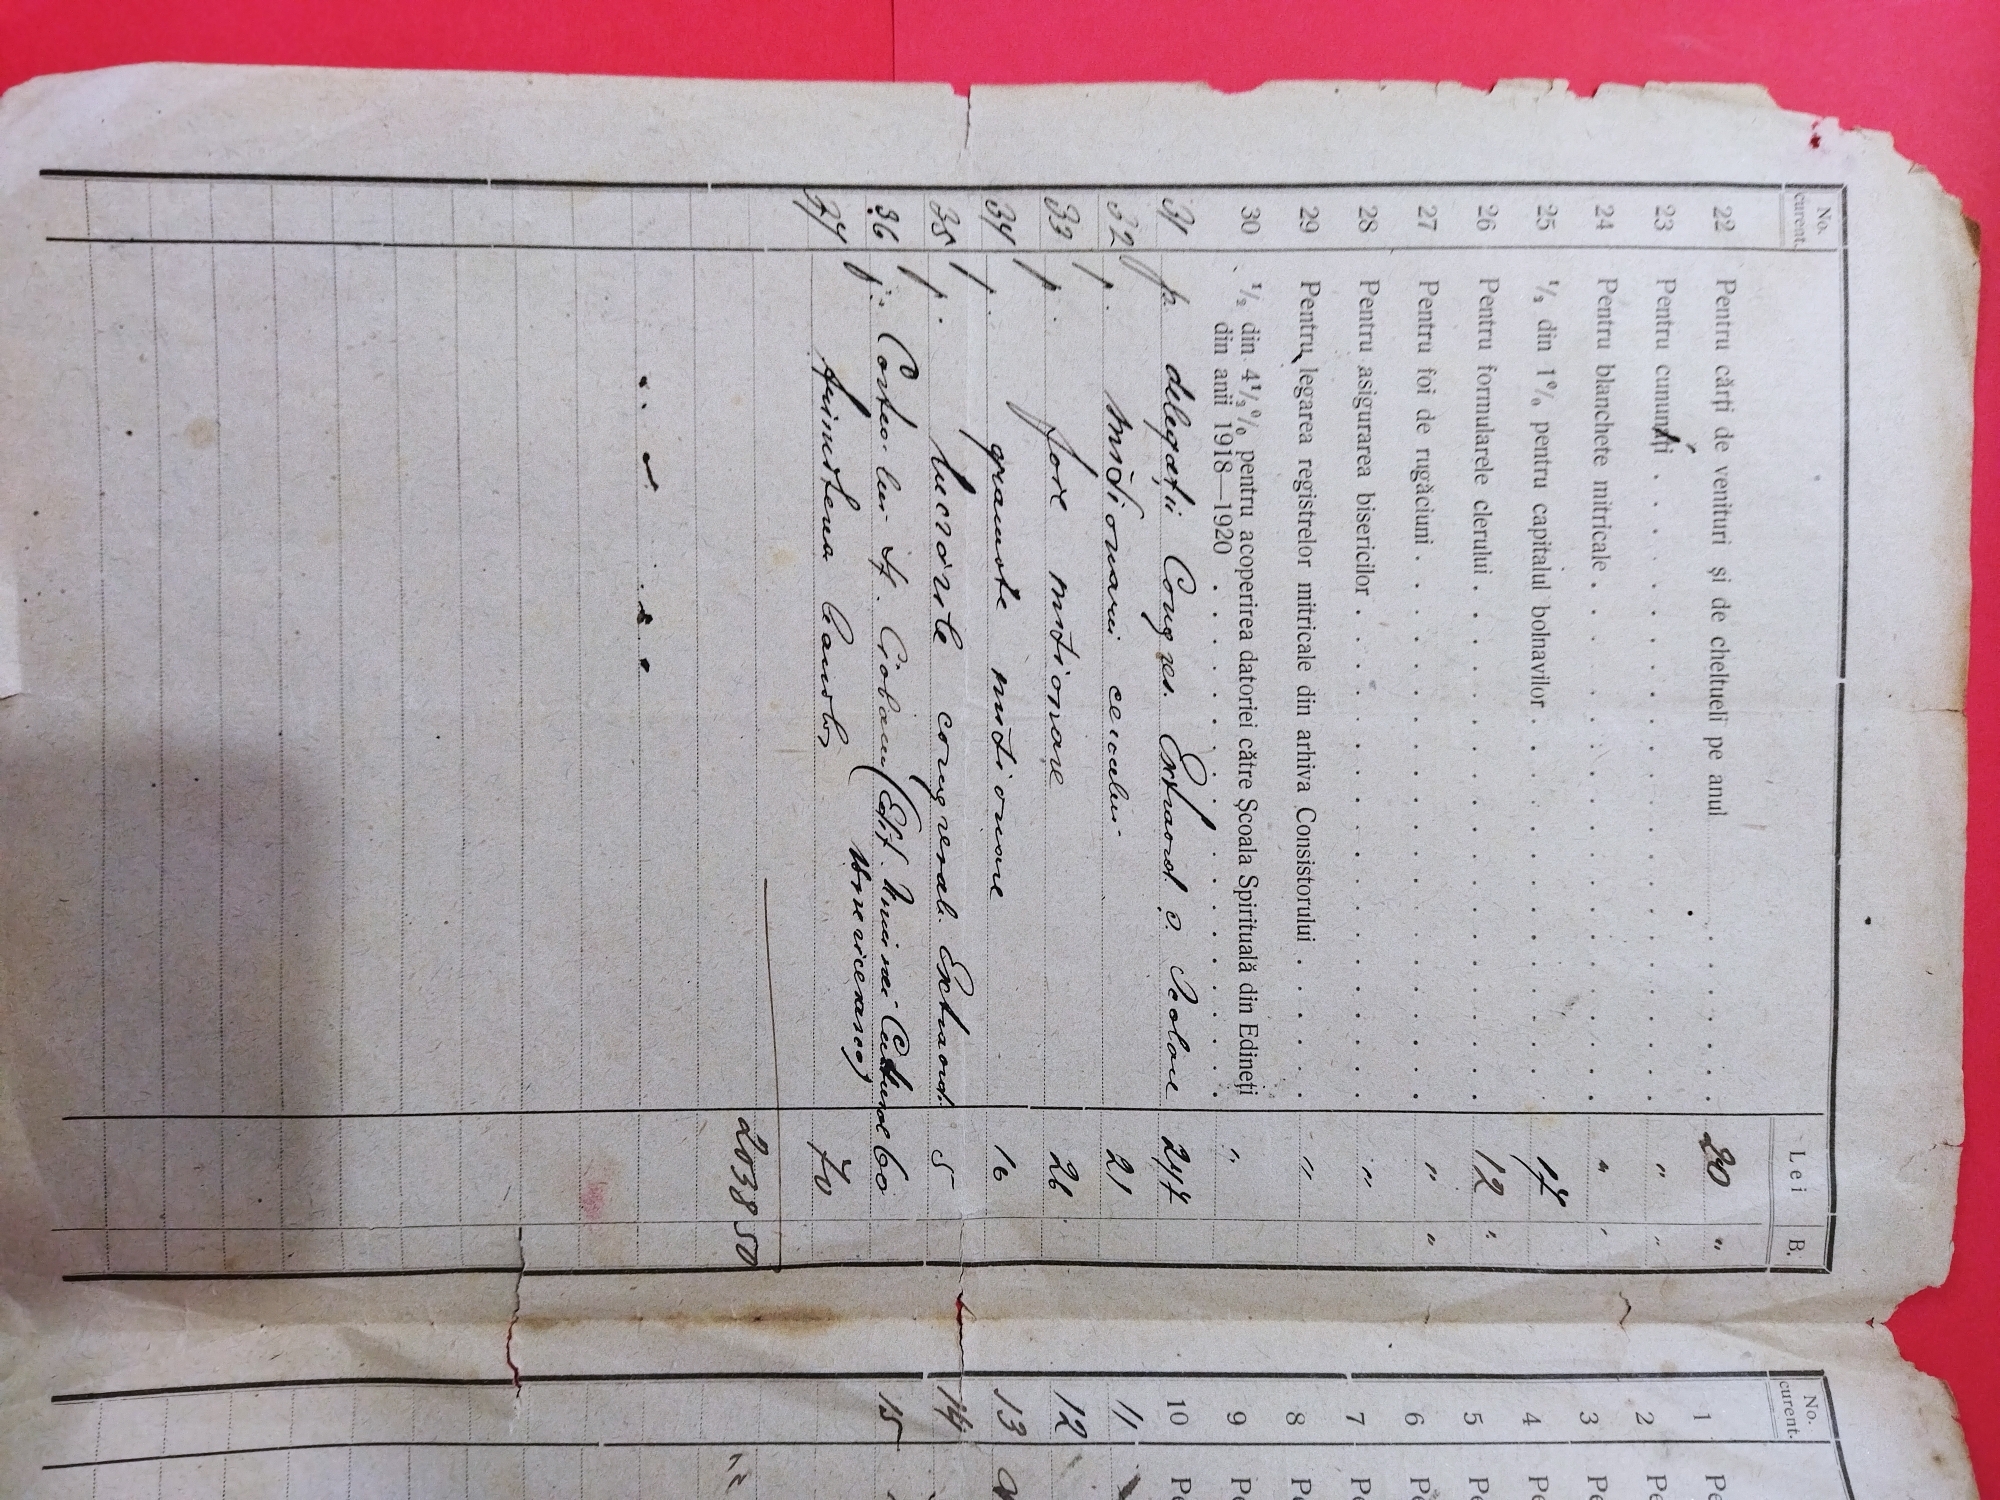 No. curent. Lei B.
22 Pentru cărți de venituri și de cheltueli pe anul . . . . 20 "
23 Pentru cununii . . . . . . . . . . . . " "
24 Pentru blanchete mitricale . . . . . . . . . . "
25 ½ din 1% pentru capitalul bolnavilor . . . . . . . 17
26 Pentru formularele clerului . . . . . . . . . . 12 "
27 Pentru foi de rugăciuni . . . . . . . . . . . " "
28 Pentru asigurarea bisericilor . . . . . . . . . "
29 Pentru legarea registrelor mitricale din arhiva Consistorului . . . "
30 ½ din 4½% pentru acoperirea datoriei către Școala Spirituală din Edineți
din anii 1918—1920 . . . . . . . . . . "
31 p. delegații Congres. Extraord. 247
32 p. misionarii cercului 21
33 p. foae misionare 26
34 p. gramote misionare 16
35 p. lucrările congresul. Extraord. 5
36 p. Cortea lui Șt. Ciobanu (Edif. Unirei Culturale 60
basarabene)
70
2038 50
No. curent.
1 Pe
2 Pe
3 Pe
4 Pe
5 Pe
6 Pe
7 Pe
8 Pe
9 Pe
10 Pe
11
12
13
14
15